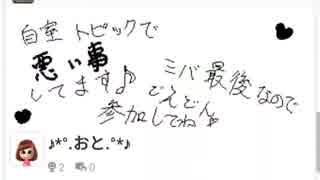 自室トピックで
悪い事
してます♪
ミバ最後なので
どんどん
参加してね
♪*°.おと.°*♪
2 0